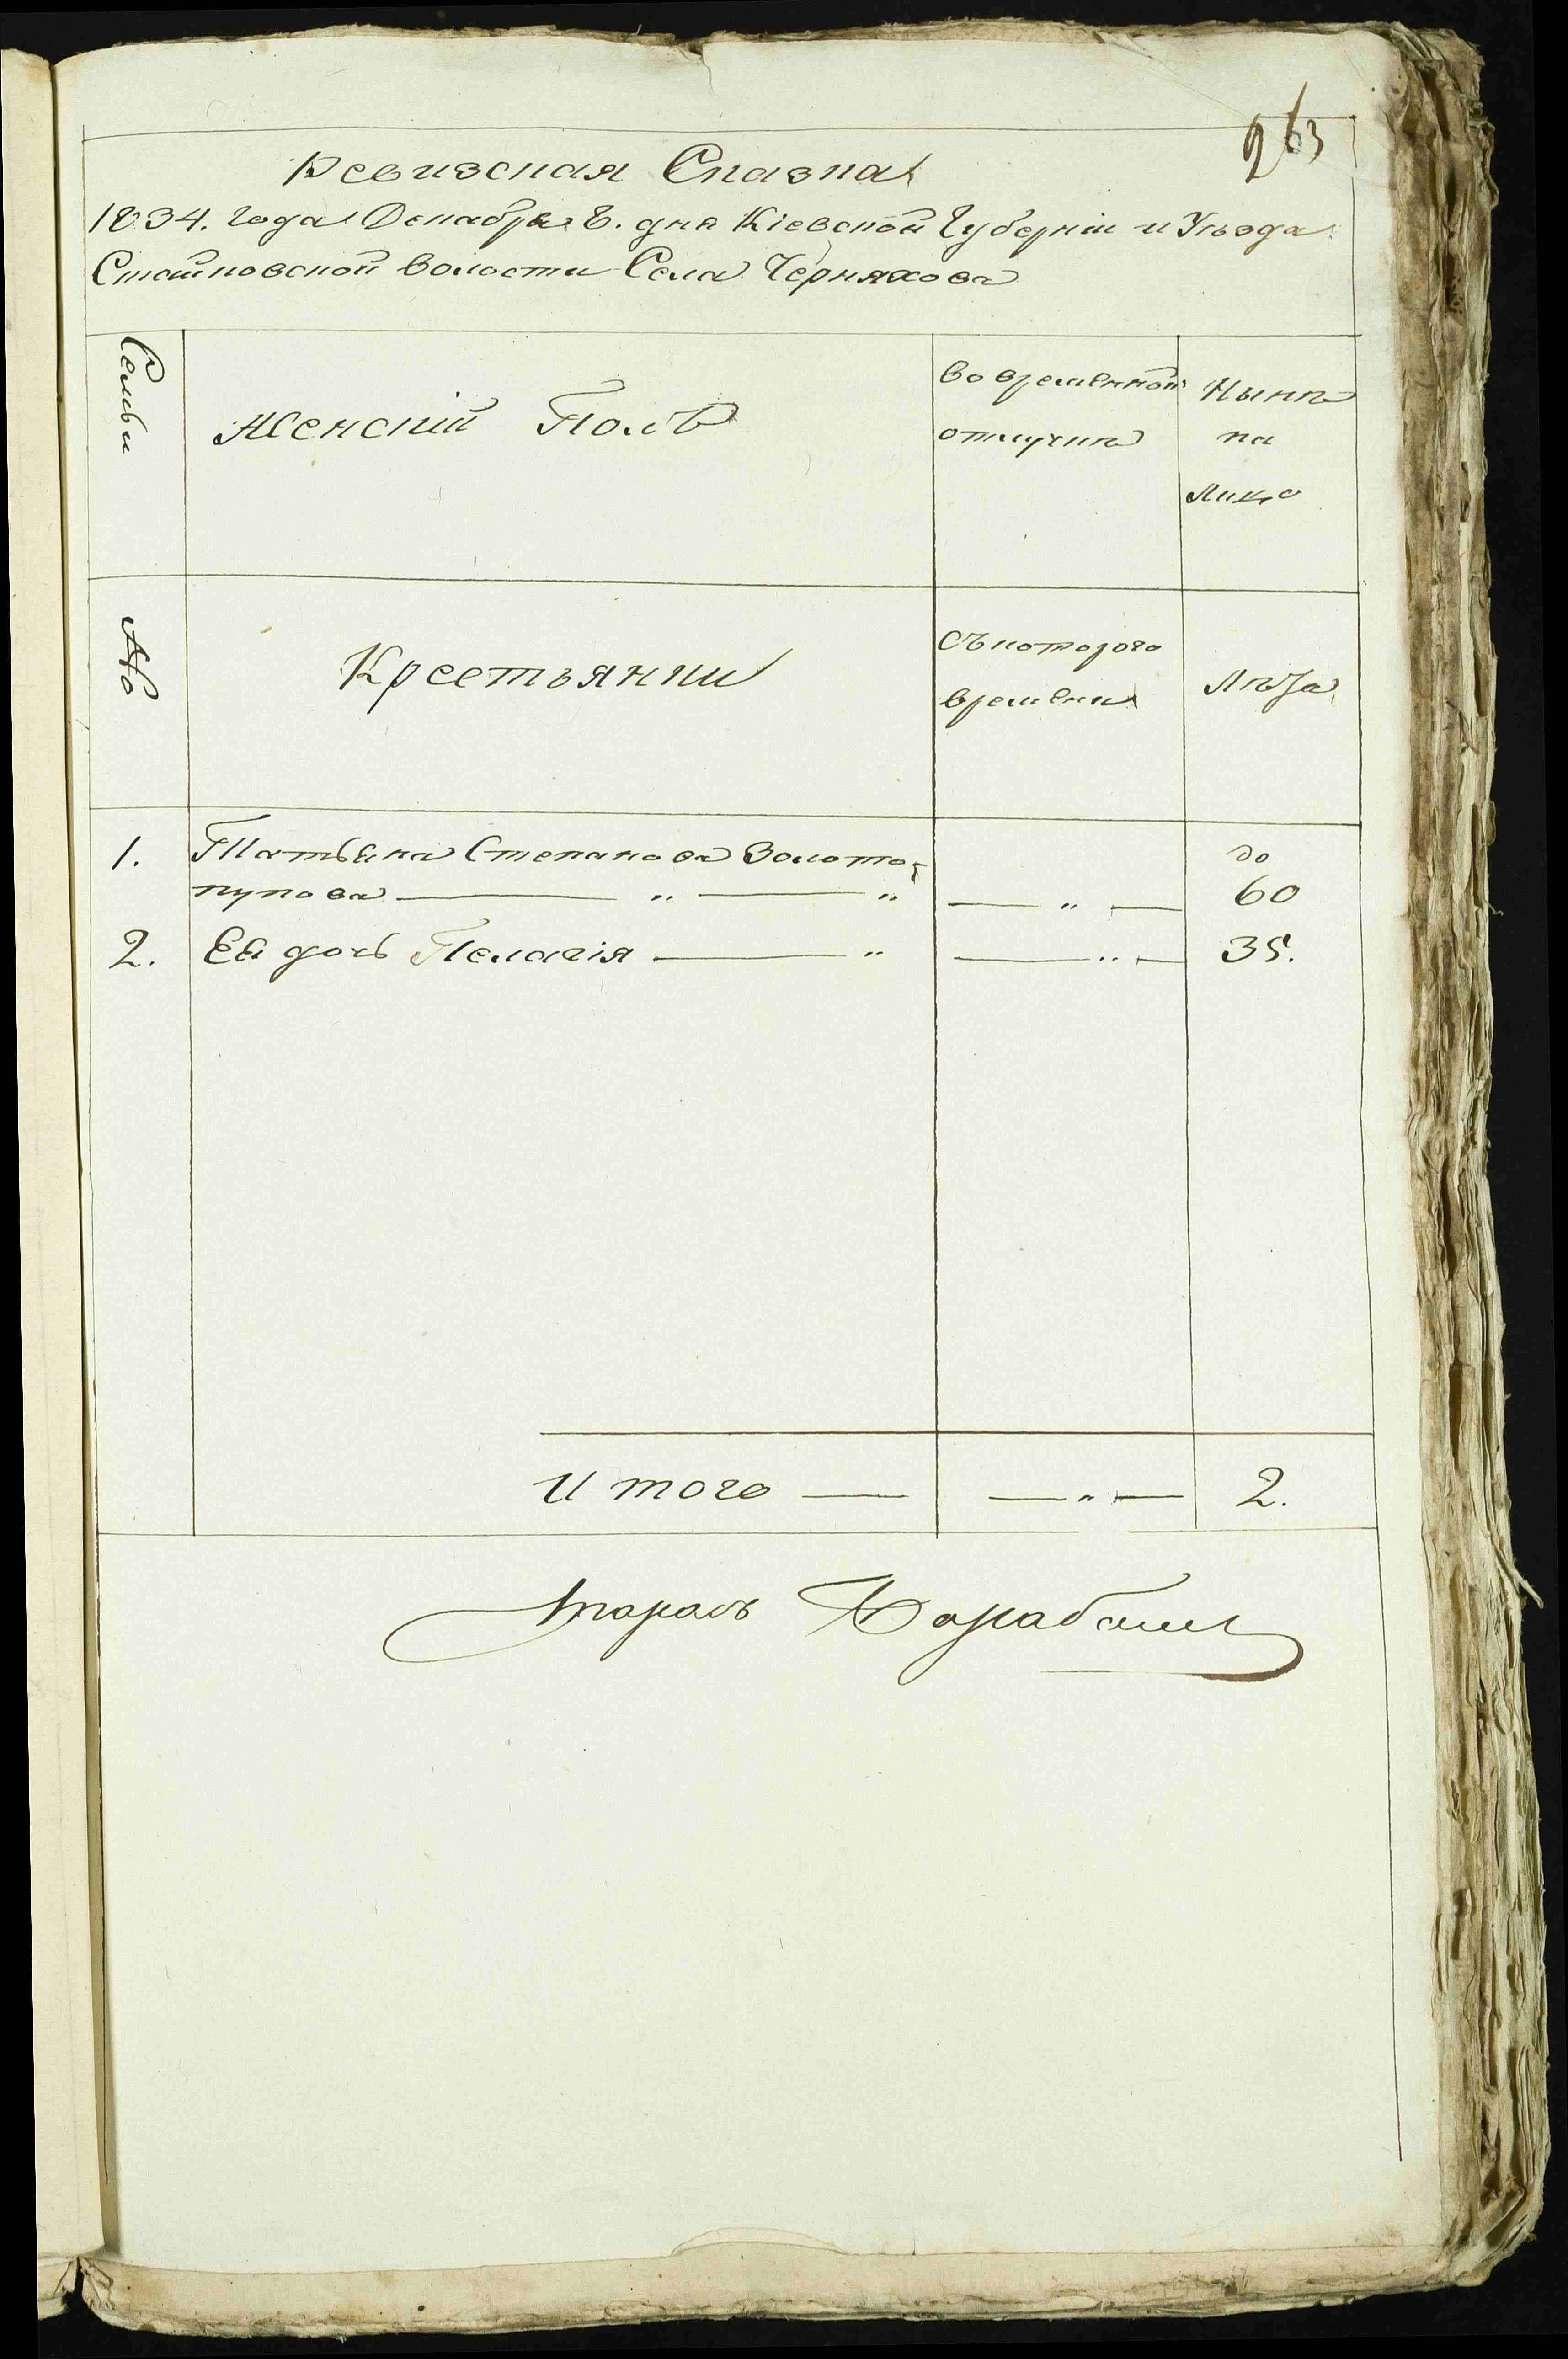 263
Ревизская Сказка
1834. года Декабря 6. дня Кіевской Губерніи и Уѣзда
Стайковской волости Села Черняхова
Семьи
Женскій Полъ
Во временной
отлучкѣ
Нынѣ
на
лицо
№
Крестьянки
Съ котораго
времени
Лѣта
1. Татьяна Степанова Золото-
до
пупова — „ — „ — „ — 60
2. Ея дочь Пелагія — „ — „ — 35.
Итого — — „ — 2.
Тарасъ Карабаш